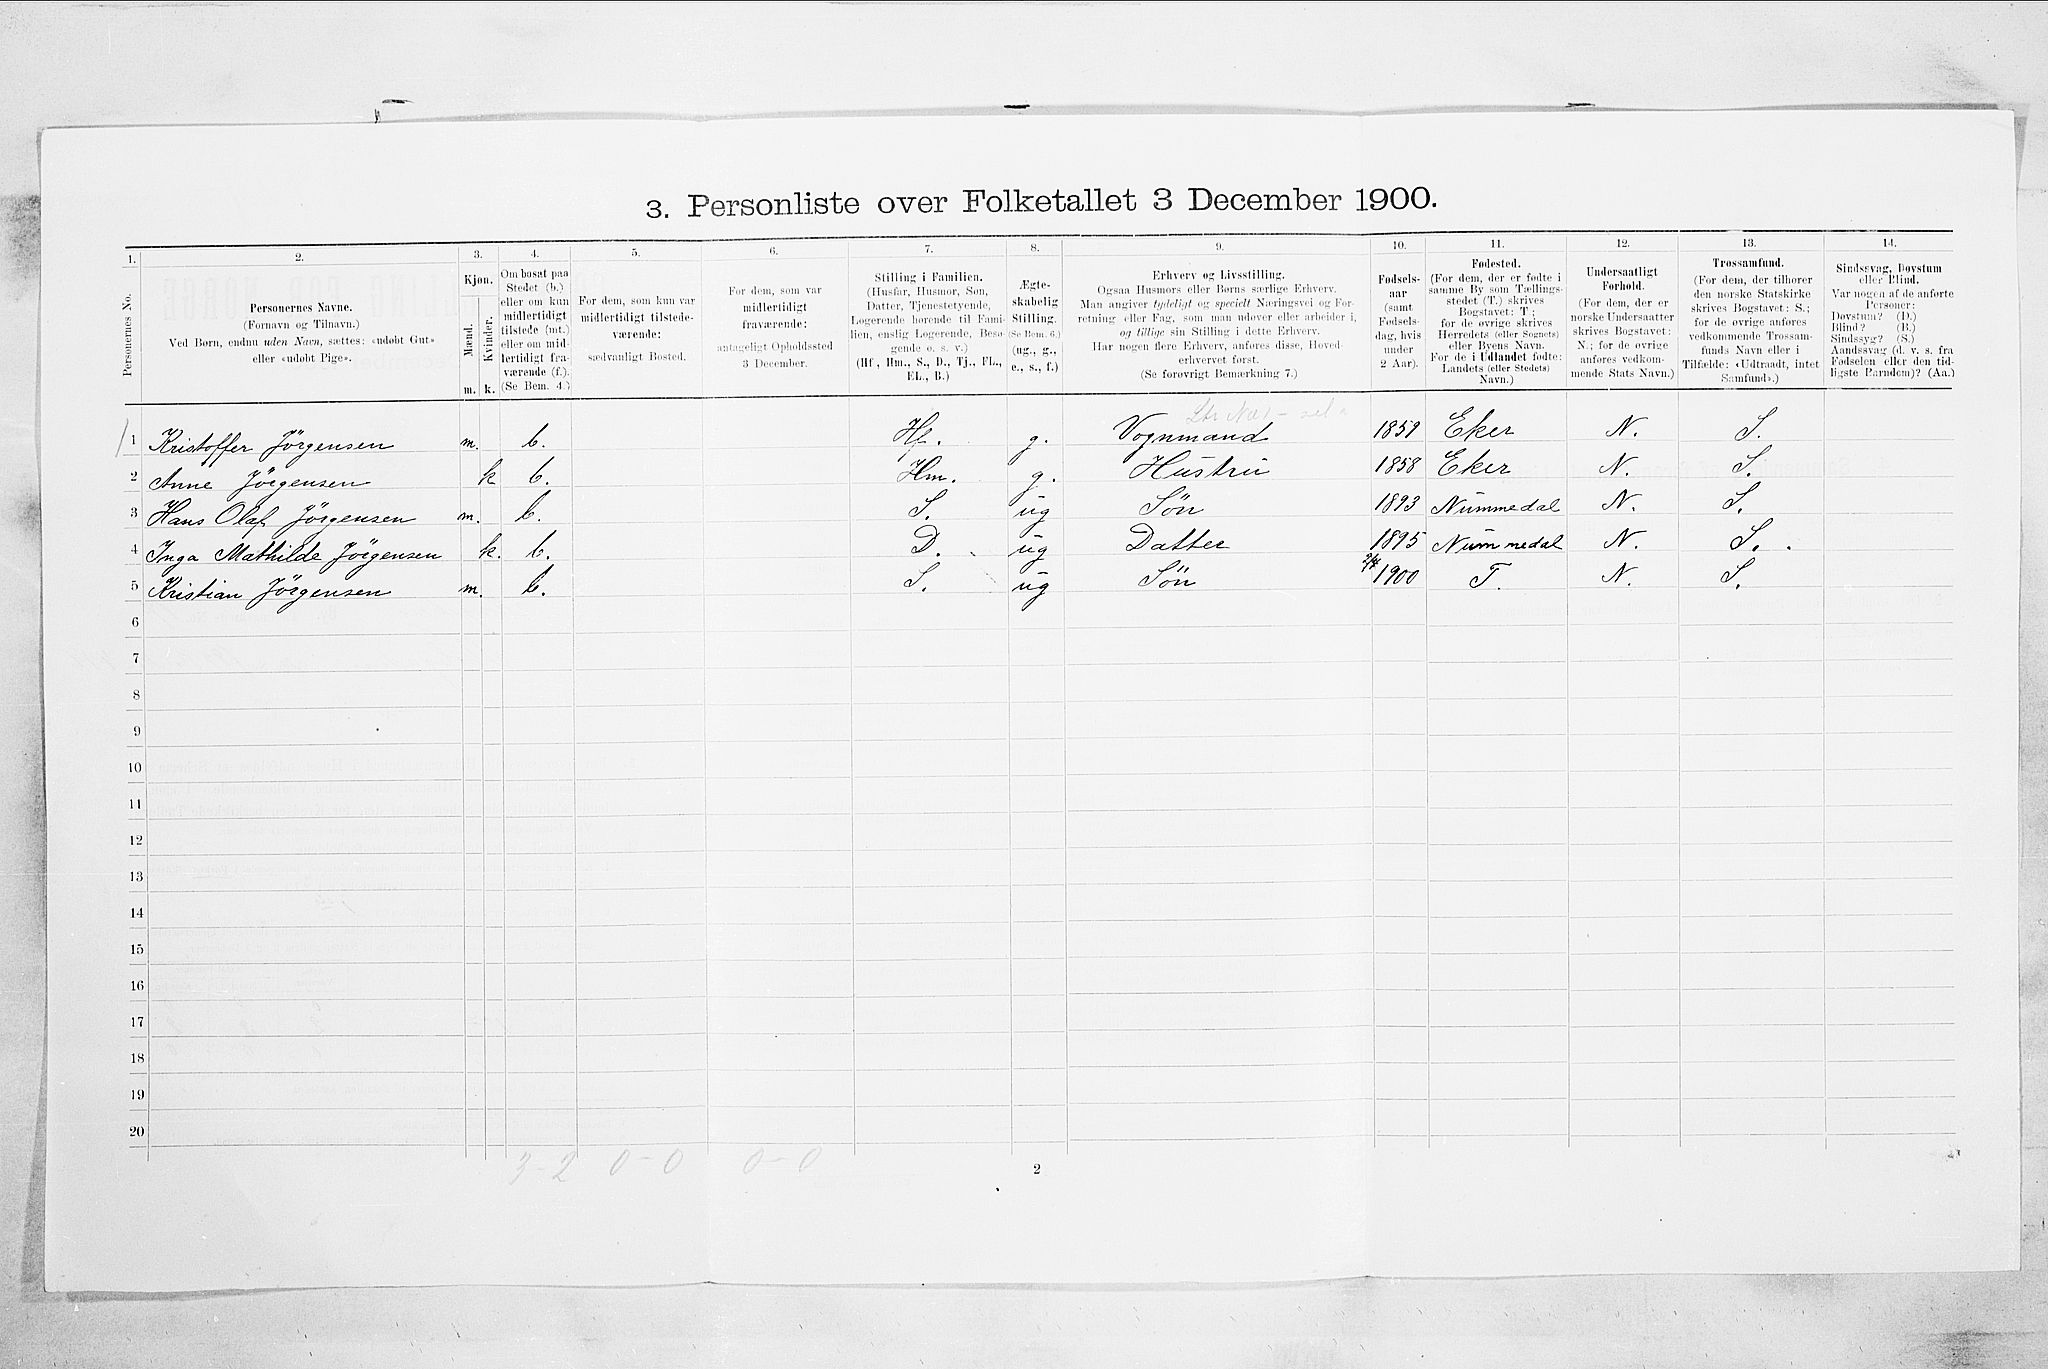 3. Personliste over Folketallet 3 December 1900.
1. 2. 3. 4. 5. 6. 7. 8. 9. 10. 11. 12. 13. 14.
Personernes No.
Personernes Navne.
(Fornavn og Tilnavn.)
Ved Børn, endnu uden Navn, sættes: «udøbt Gut»
eller «udøbt Pige».
Kjøn.
Mænd.
Kvinder.
m. k.
Om bosat paa
Stedet (b.)
eller om kun
midlertidigt
tilstede (mt.)
eller om mid-
lertidigt fra-
værende (f.).
(Se Bem. 4.)
For dem, som kun var
midlertidigt tilstede-
værende:
sædvanligt Bosted.
For dem, som var
midlertidigt
fraværende:
antageligt Opholdssted
3 December.
Stilling i Familien.
(Husfar, Husmor, Søn,
Datter, Tjenestetyende,
Logerende hørende til Fami-
lien, enslig Logerende, Besø-
gende o. s. v.)
(Hf, Hm., S., D., Tj., FL.,
EL., B.)
Ægte-
skabelig
Stilling.
(Se Bem. 6.)
(ug., g.,
e., s., f.)
Erhverv og Livsstilling.
Ogsaa Husmors eller Børns særlige Erhverv.
Man angiver tydeligt og specielt Næringsvei og For-
retning eller Fag, som man udøver eller arbeider i,
og tillige sin Stilling i dette Erhverv.
Har nogen flere Erhverv, anføres disse, Hoved-
erhvervet først.
(Se forøvrigt Bemærkning 7.)
Fødsels-
aar
(samt
Fødsels-
dag, hvis
under
2 Aar).
Fødested.
(For dem, der er fødte i
samme By som Tællings-
stedet (T.) skrives
Bogstavet: T ;
for de øvrige skrives
Herredets (eller Sognets)
eller Byens Navn.
For de i Udlandet fødte:
Landets (eller Stedets)
Navn.)
Undersaatligt
Forhold.
(For dem, der er
norske Undersaatter
skrives Bogstavet:
N.; for de øvrige
anføres vedkom-
mende Stats Navn.)
Trossamfund.
(For dem, der tilhører
den norske Statskirke
skrives Bogstavet: S.;
for de øvrige anføres
vedkommende Trossam-
funds Navn eller i
Tilfælde: «Udtraadt, intet
Samfund».)
Sindssvag, Døvstum
eller Blind.
Var nogen af de anførte
Personer:
Døvstum? (D.)
Blind? (B.)
Sindssyg? (S.)
Aandssvag (d. v. s. fra
Fødselen eller den tid-
ligste Barndom)? (Aa.)
1 Kristoffer Jörgensen m. b. Hf. g. Vognmand 1859 Eker N. S.
2 Anne Jörgensen k b. Hm. g. Hustru 1858 Eker N. S.
3 Hans Olaf Jörgensen m. b. S. ug Søn 1893 Nummedal N. S.
4 Inga Mathilde Jörgensen k. b. D. ug Datter 1895 Nummedal N. S.
5 Kristian Jörgensen m. b. S. ug Søn 2/4 1900 T. N. S.
6
7
8
9
10
11
12
13
14
15
16
17
18
19
20
3-2 0-0 0-0
2